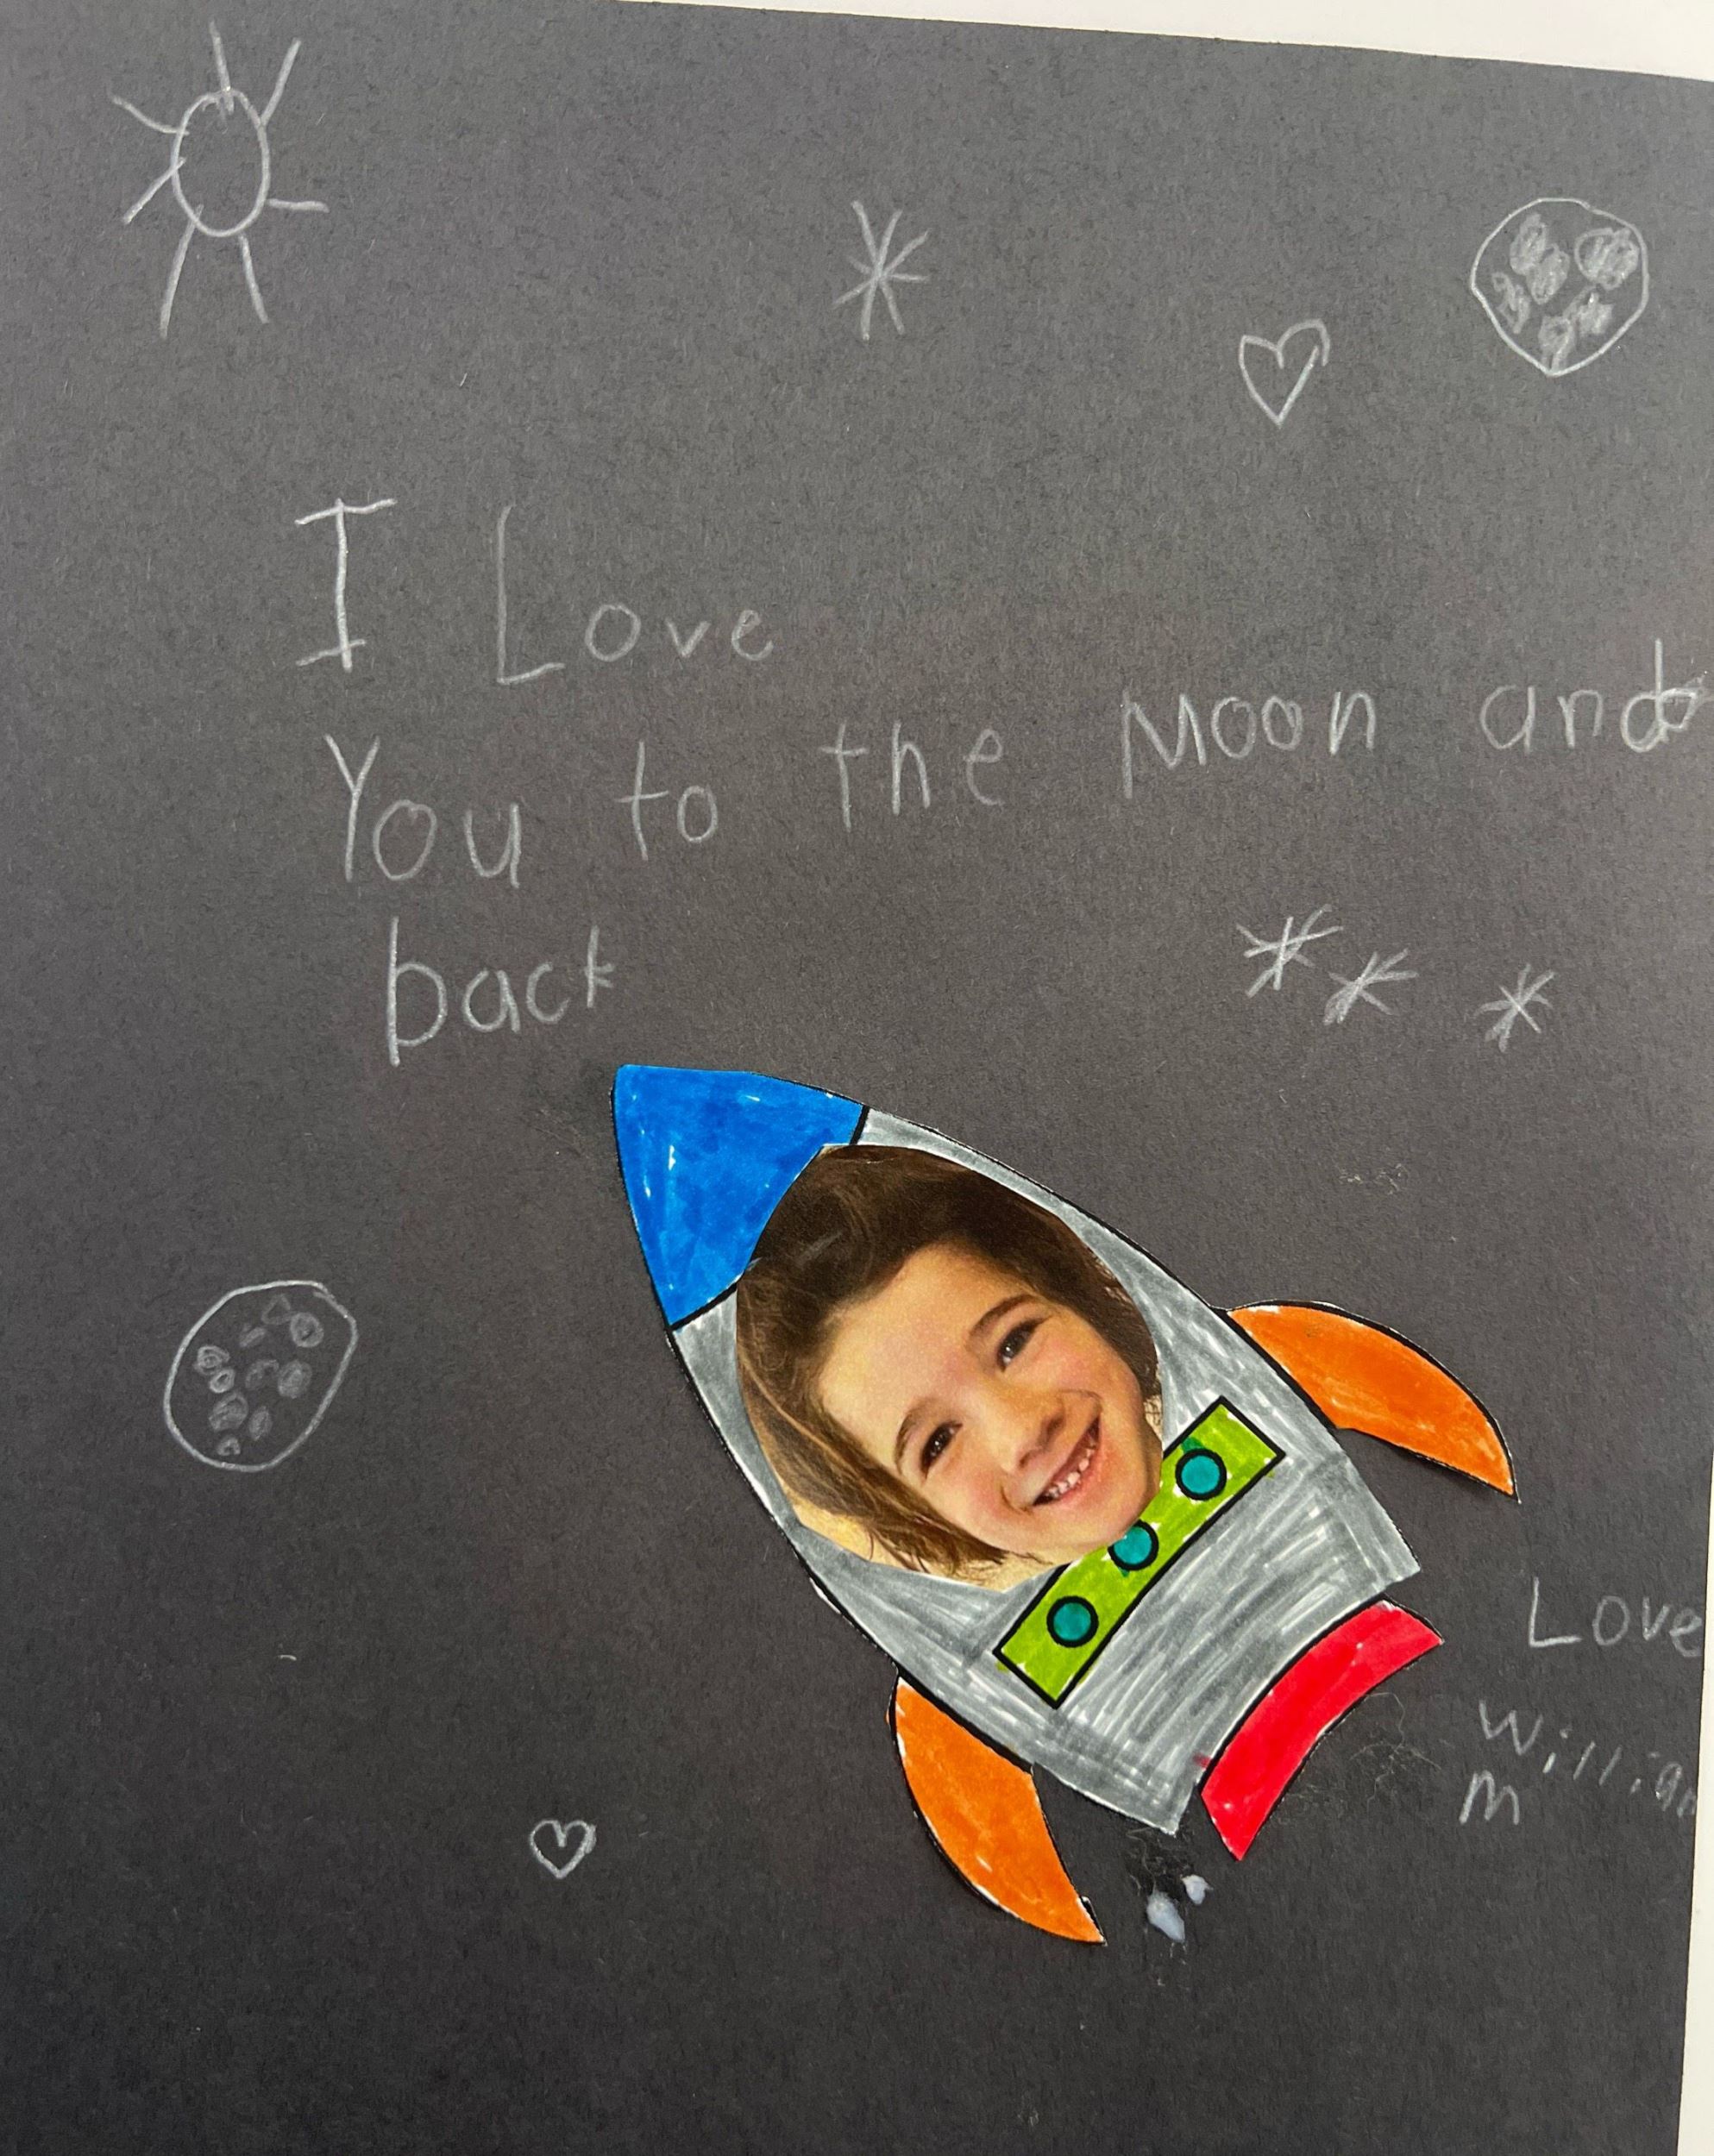 I Love
You to the Moon and
back
Love
William
m